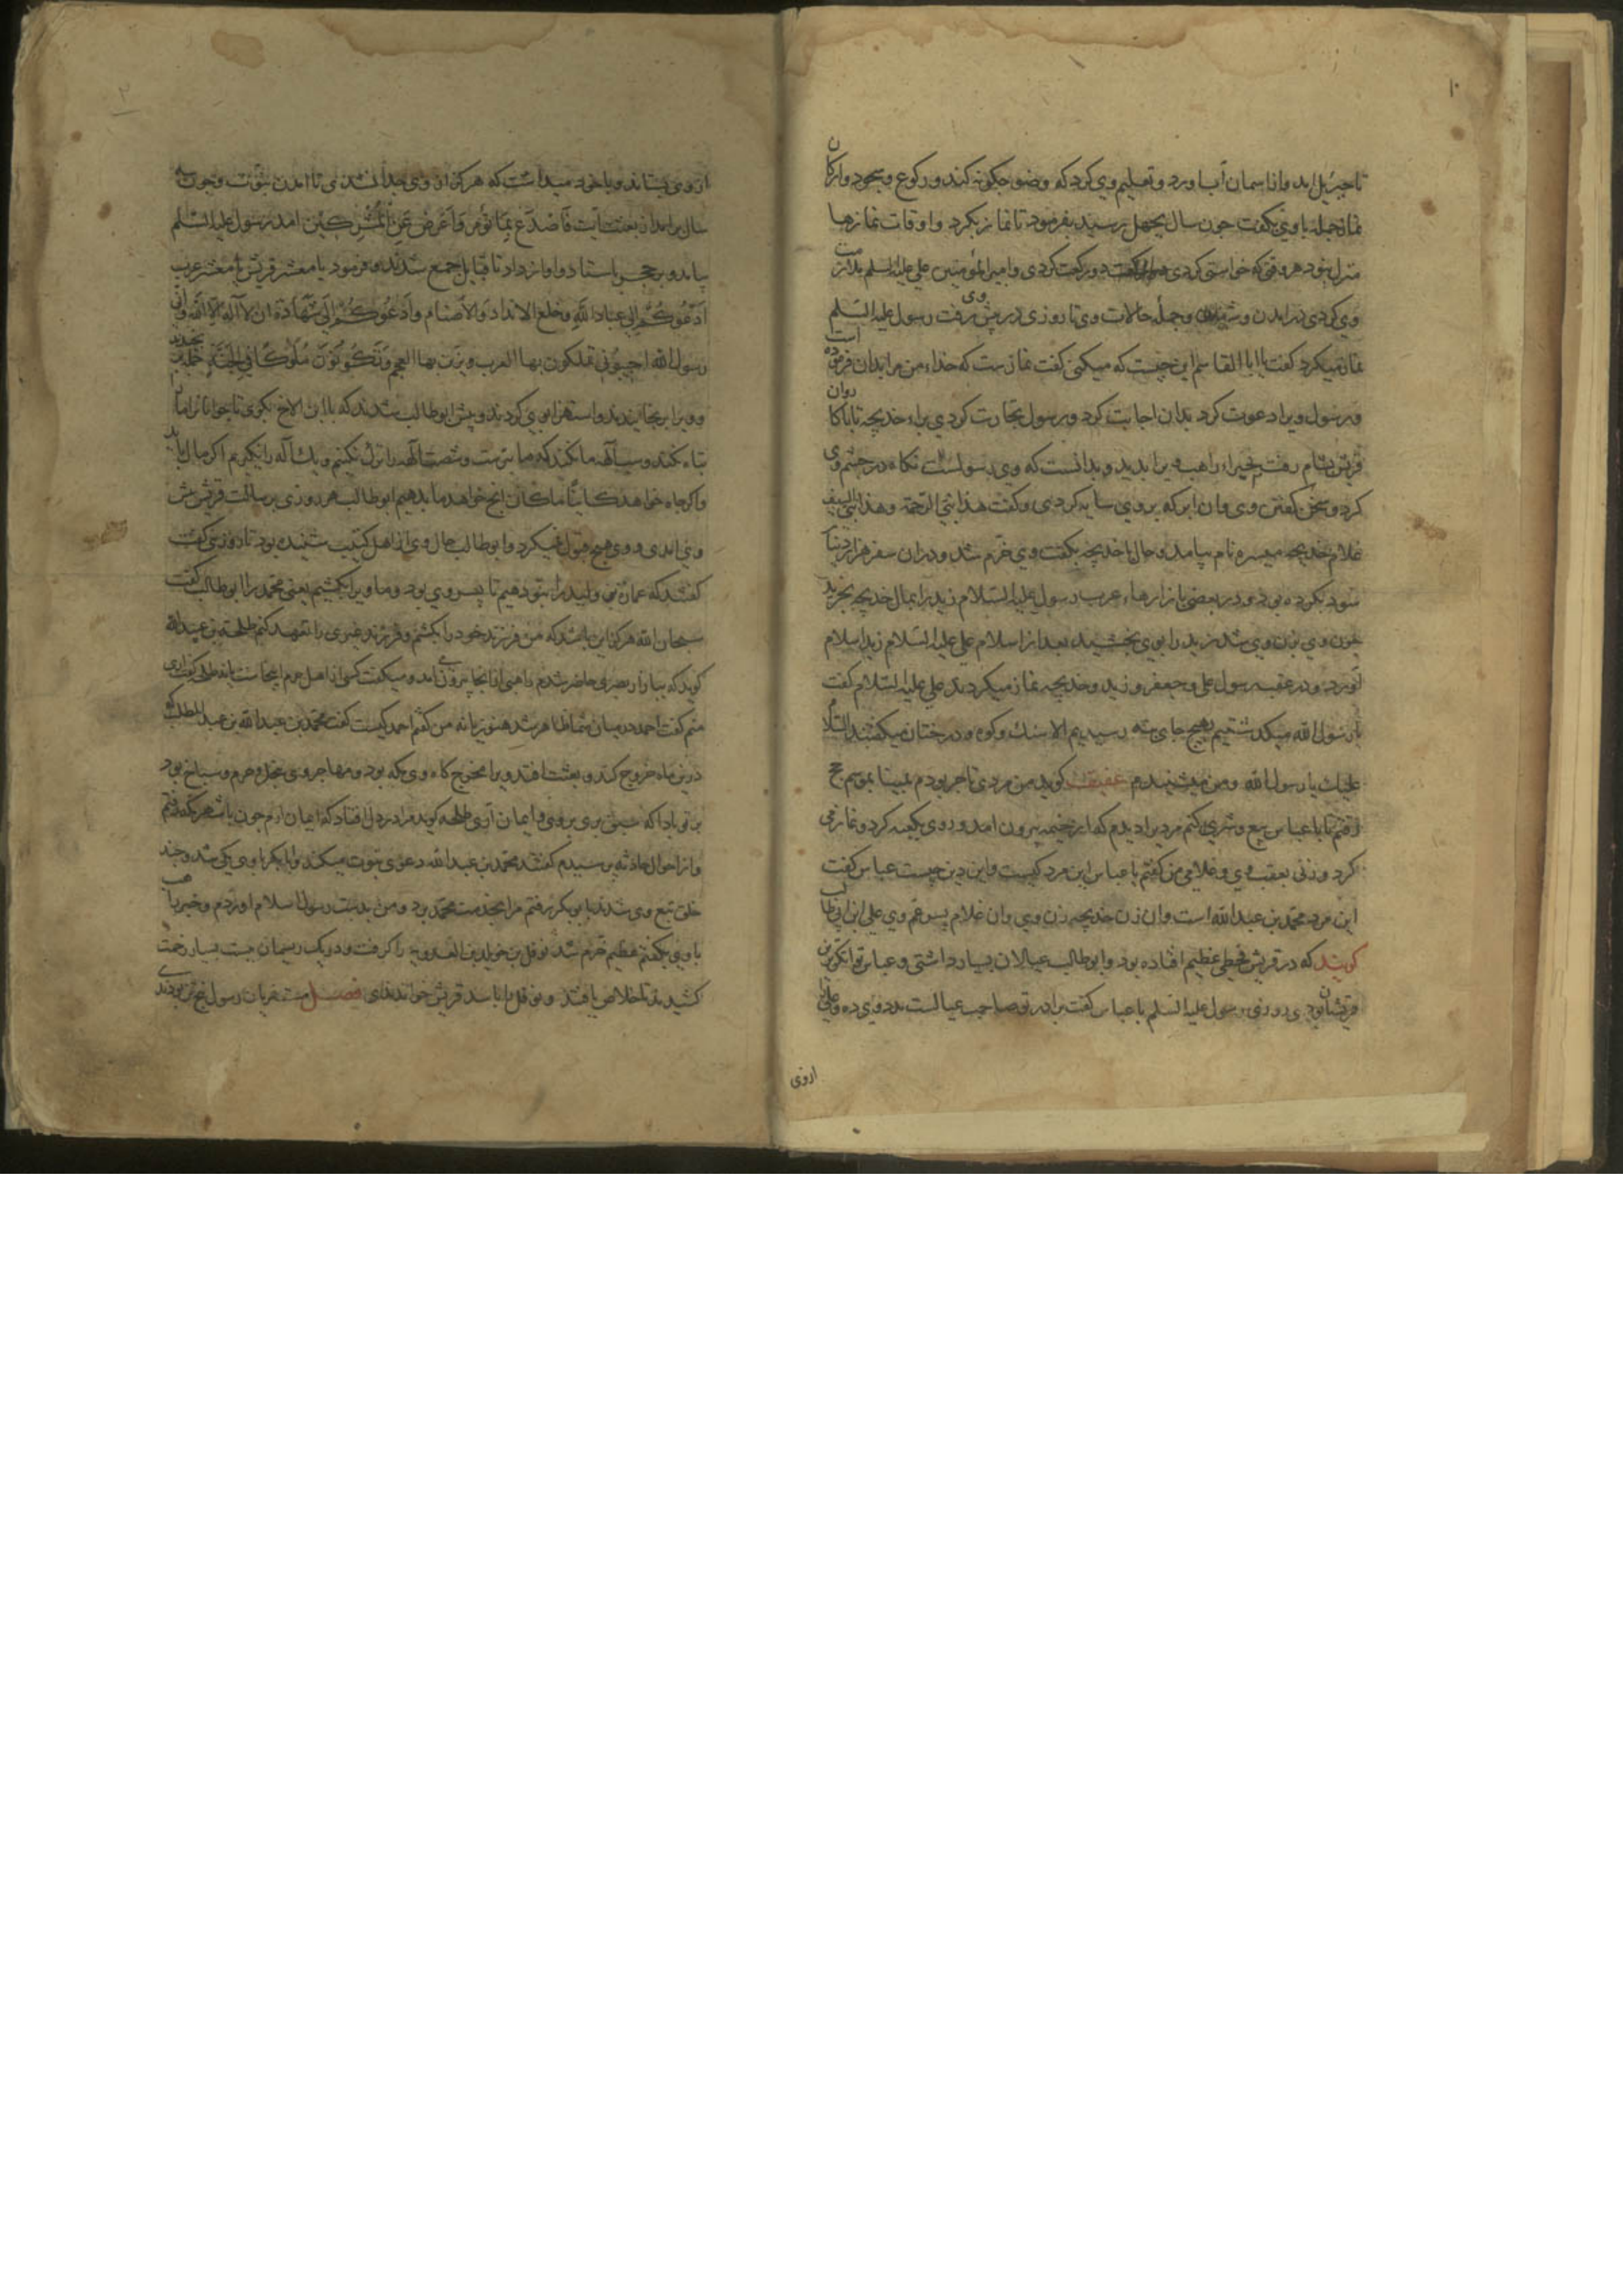 ۱۰
تا جبرئیل امد و از اسمان آب اورد و تعلیم وی کرد که وضو جکونه کند و رکوع و سجود و ارکان
نماز جمله با وی بکفت جون سال بجهل رسید بفرمود تا نماز بکرد و اوقات نمازها
منزل نبود هر وقتی که خواستی کردی دو رکعت کردی و امیر المؤمنین علی علیه السلم ملازمت
وی کردی در امدن و شدن و جمله حالات وی تا روزی در پیش وی رفت رسول علیه السلم
نماز میکرد کفت یا ابا القاسم این چیست که میکنی کفت نمازست که خداء من مرا بدان فرموده است
و رسول ویرا دعوت کرد بدان اجابت کرد و رسول تجارت کردی براء خدیجه تا با کاروان
قریش بشام رفت بحیراء راهب ویرا بدید و بدانست که وی رسولست نکاه در جشم وی
کرد و سخن کفتن وی و ان ابر که بر وی سایه کردی و کفت هذا نبی الرحمة و هذا نبی السیف
غلام خدیجه میسره نام بیامد و حال با خدیجه بکفت وی خرم شد و دران سفر هزار دینار
سود بکرده بود و در بعضی بازارهاء عرب رسول علیه السلام زید را بمال خدیجه بخرید
جون وی زن وی شد زید را بوی بخشید بعد از اسلام علی علیه السلام زید اسلام
آورد و در عقب رسول علی و جعفر و زید و خدیجه نماز میکردند علی علیه السلام کفت
با رسول الله میکذشتیم بهیج جای نه رسیدیم الا سنك و کوه و درختان میکفتند السلام
علیك یا رسول الله و من میشنیدم عفیف کوید من مردی تاجر بودم بمینا بموسم حج
رفتم تا با عباس بیع و شری کنم مردیرا دیدم که از خیمه بیرون امد و روی بکعبه کرد و نماز می
کرد و زنی بعقب وی و غلامی من کفتم یا عباس این مرد کیست و این دین چیست عباس کفت
این مرد محمد بن عبدالله است و ان زن خدیجه زن وی و ان غلام پسر عم وی علی ابن ابی طالب
کویند که در قریش قحطی عظیم افتاده بود و ابو طالب عیالان بسیار داشتی و عباس توانکرترین
قریشان بودی روزی رسول علیه السلم با عباس کفت برادر تو صاحب عیالست مدد وی ده و علی
ازوی
۲
از وی بستاند و با خود میداشت که هرکز از وی جدا نشدی تا امدن نبوت و جون سه
سال بر امد از بعثت آیت فَاصْدَعْ بِمَا تُؤْمَرُ وَأَعْرِضْ عَنِ الْمُشْرِكِينَ امد رسول علیه السلم
بیامد و بر حجر باستاد و اواز داد تا قبایل جمع شدند و فرمود یا معشر قریش یا معشر عرب
اَدْعُوكُمْ الی عبادة الله وخلع الانداد والاصنام وادْعُوكُمْ الی شَهَادَة ان لا اله الا الله وانی
رسول الله اجیبونی تملکون بها العرب و یدین بها العجم وتَکُونُونَ مُلُوکًا فی الجنة
و ویرا برنجانیدند و استهزا بوی کردند و پیش ابو طالب شدند که با ابن الاخ بکوی تا جوانان ما را
تباه نکند و سب آلهه ما نکند که ما سیصد و شصت آلهه را ترك نکنیم و یك آله را نکیریم اکر مال باید
و اکر جاه خواهد کاینًا ما کان انج خواهد ما بدهیم ابو طالب هر روزی برسالت قریش پیش
وی امدی و وی هیج قبول نمیکرد و ابو طالب حال وی از اهل کتب شنیده بود تا روزی
کفتند که عمارة بن ولید را بتو دهیم تا پسر وی بود و ما ویرا بکشیم یعنی محمد را ابو طالب کفت
سبحان الله هرکز این باشد که من فرزند خود را بکشم و فرزند غیری را تعهد کنم طلحة بن عبیدالله
کوید که ببازار بصری حاضر شدم راهبی از انجا بیرون امد و میکفت کسی از اهل حرم اینجا هست یا نه طلحه کفت اری
منم کفت احمد در میان شما ظاهر شد هنوز یا نه من کفتم احمد کیست کفت محمد بن عبدالله بن عبدالمطلب که
درین ماه خروج کند و بعثت افتد ویرا مخرج کاه وی مکه بود و مهاجر وی نخل و حرم و سباخ بود
بر تو بادا که سبق بری بر وی و ایمان آری طلحه کوید مرا در دل افتاد که ایمان ارم جون باشهر مکه رفتم
و از احوال حادثه پرسیدم کفتند محمد بن عبدالله دعوی نبوت میکند و ابابکر با وی یکی شد و جند
خلق تبع وی شدند با بوبکر رفتم مرا بخدمت محمد برد و من بدست رسول اسلام اوردم و خبر راهب
با وی بکفتم عظیم خرم شد نوفل بن خویلد بن العدویه را کرفت و در یك ریسمان بست بسیار زحمت
کشیدند تا خلاص یافتند و نوفل را اسد قریش خواندندی فصل مستهزیان رسول پنج تن بودندی